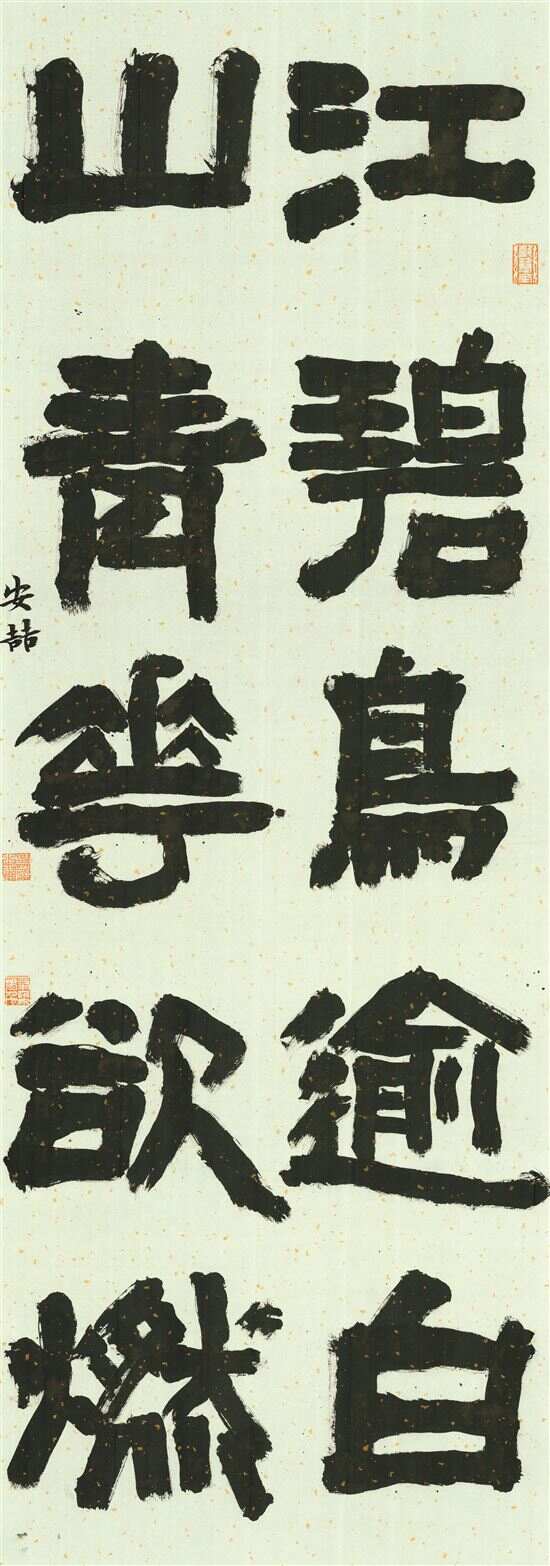 江碧鳥逾白
山青花欲燃
安喆